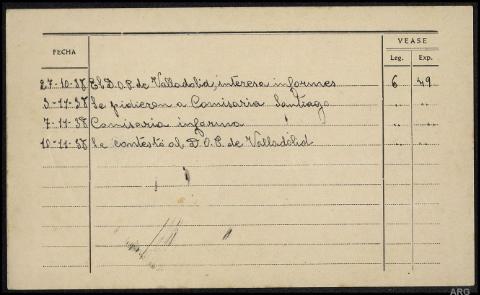 VEASE
FECHA Leg. Exp.
27-10-38 El D.O.P. de Valladolid, interesa informes 6 49
3-11-38 Se pidieron a Comisaria Santiago " "
7-11-38 Comisaria informa " "
10-11-38 Se contestó al D.O.P. de Valladolid " "
ARG